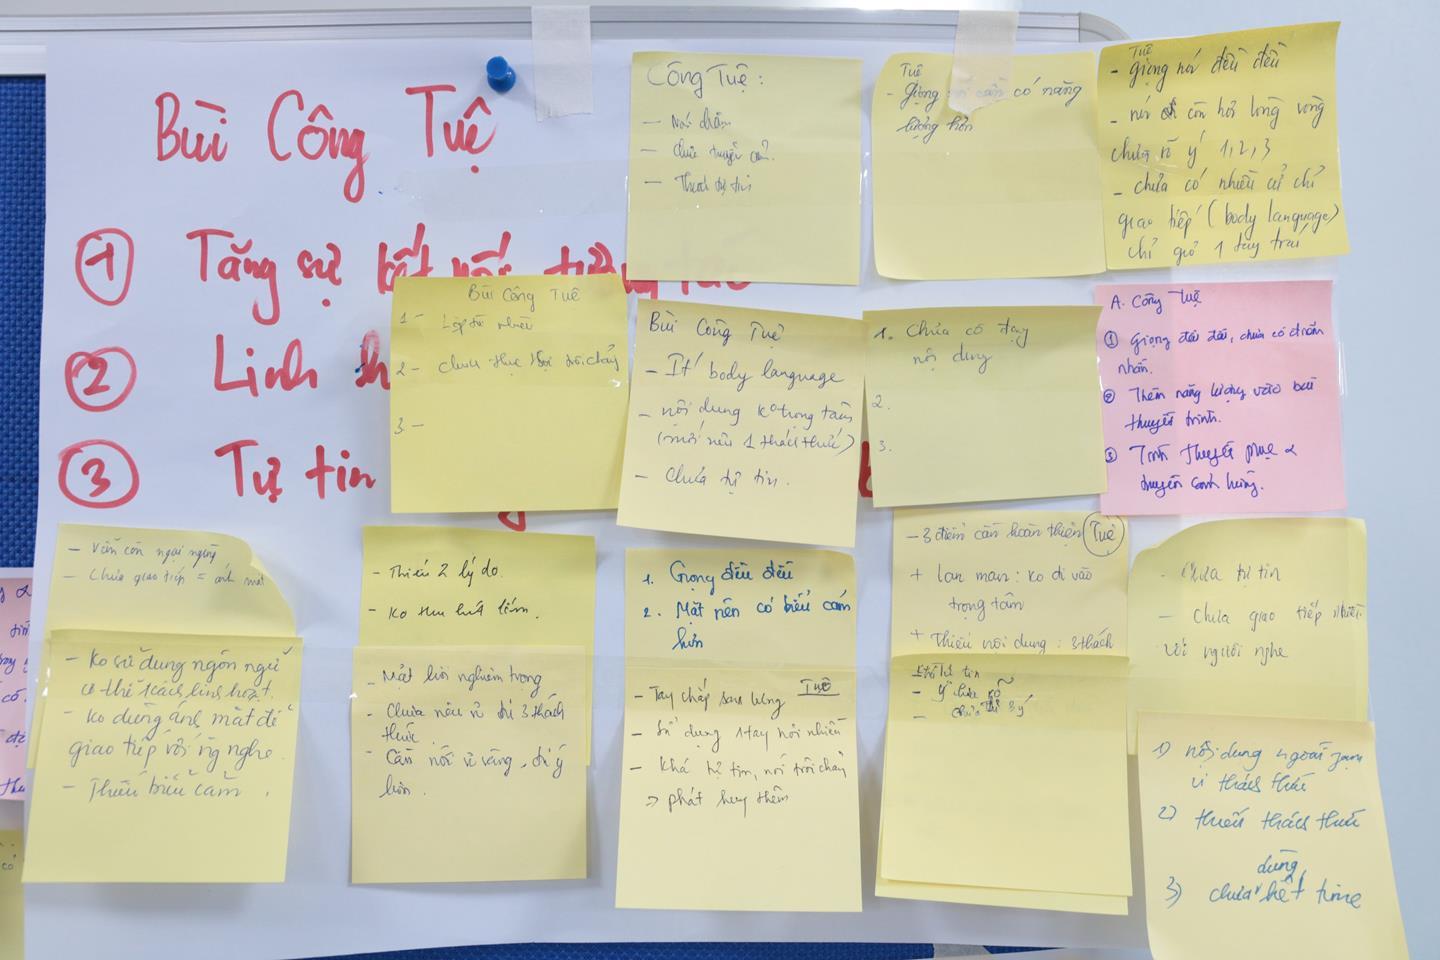 Bùi Công Tuệ
1 Tăng sự kết nối, tương tác
2 Linh h
3 Tự tin
Công Tuệ:
- Nói chậm
-
- Thiếu tự tin
Tuệ
- Giọng nói cần có năng
lượng hơn
Tuệ
- Giọng nói đều đều
- nói còn hơi lòng vòng
chưa rõ ý 1, 2, 3
- chưa có nhiều cử chỉ
giao tiếp (body language)
chỉ giơ 1 tay trái
Bùi Công Tuệ
1 - Lặp từ nhiều
2 - chưa thực sự trôi chảy
3 -
Bùi Công Tuệ
- Ít body language
- nội dung ko trọng tâm
(mới nêu 1 thách thức)
- Chưa tự tin.
1. Chưa có
nội dung
2.
3.
A. Công Tuệ
1 Giọng đều đều, chưa có điểm
nhấn.
2 Thêm năng lượng vào bài
thuyết trình.
3 Tính thuyết phục &
truyền cảm hứng.
- Vẫn còn ngại ngùng
- Chưa giao tiếp = ánh mắt
- Ko sử dụng ngôn ngữ
cơ thể 1 cách linh hoạt.
- Ko dùng ánh mắt để
giao tiếp với ng nghe.
- Thiếu biểu cảm.
- Thiếu 2 lý do.
- Ko thu hút lắm.
- Mặt hơi nghiêm trọng
- Chưa nêu rõ đủ 3 thách
thức
- Cần nói rõ ràng, đủ ý
hơn.
1. Giọng đều đều
2. Mặt nên có biểu cảm
hơn
Tuệ
- Tay chắp sau lưng
- Sử dụng 1 tay hơi nhiều
- Khá tự tin, nói trôi chảy
=> phát huy thêm
- 3 điểm cần hoàn thiện Tuệ
+ lan man: ko đi vào
trọng tâm
+ Thiếu nội dung: 3 thách
- Chưa tự tin
- Chưa giao tiếp nhiều
với người nghe
1) nội dung ngoài phạm
vi thách thức
2) thiếu thách thức
3) chưa dùng hết time